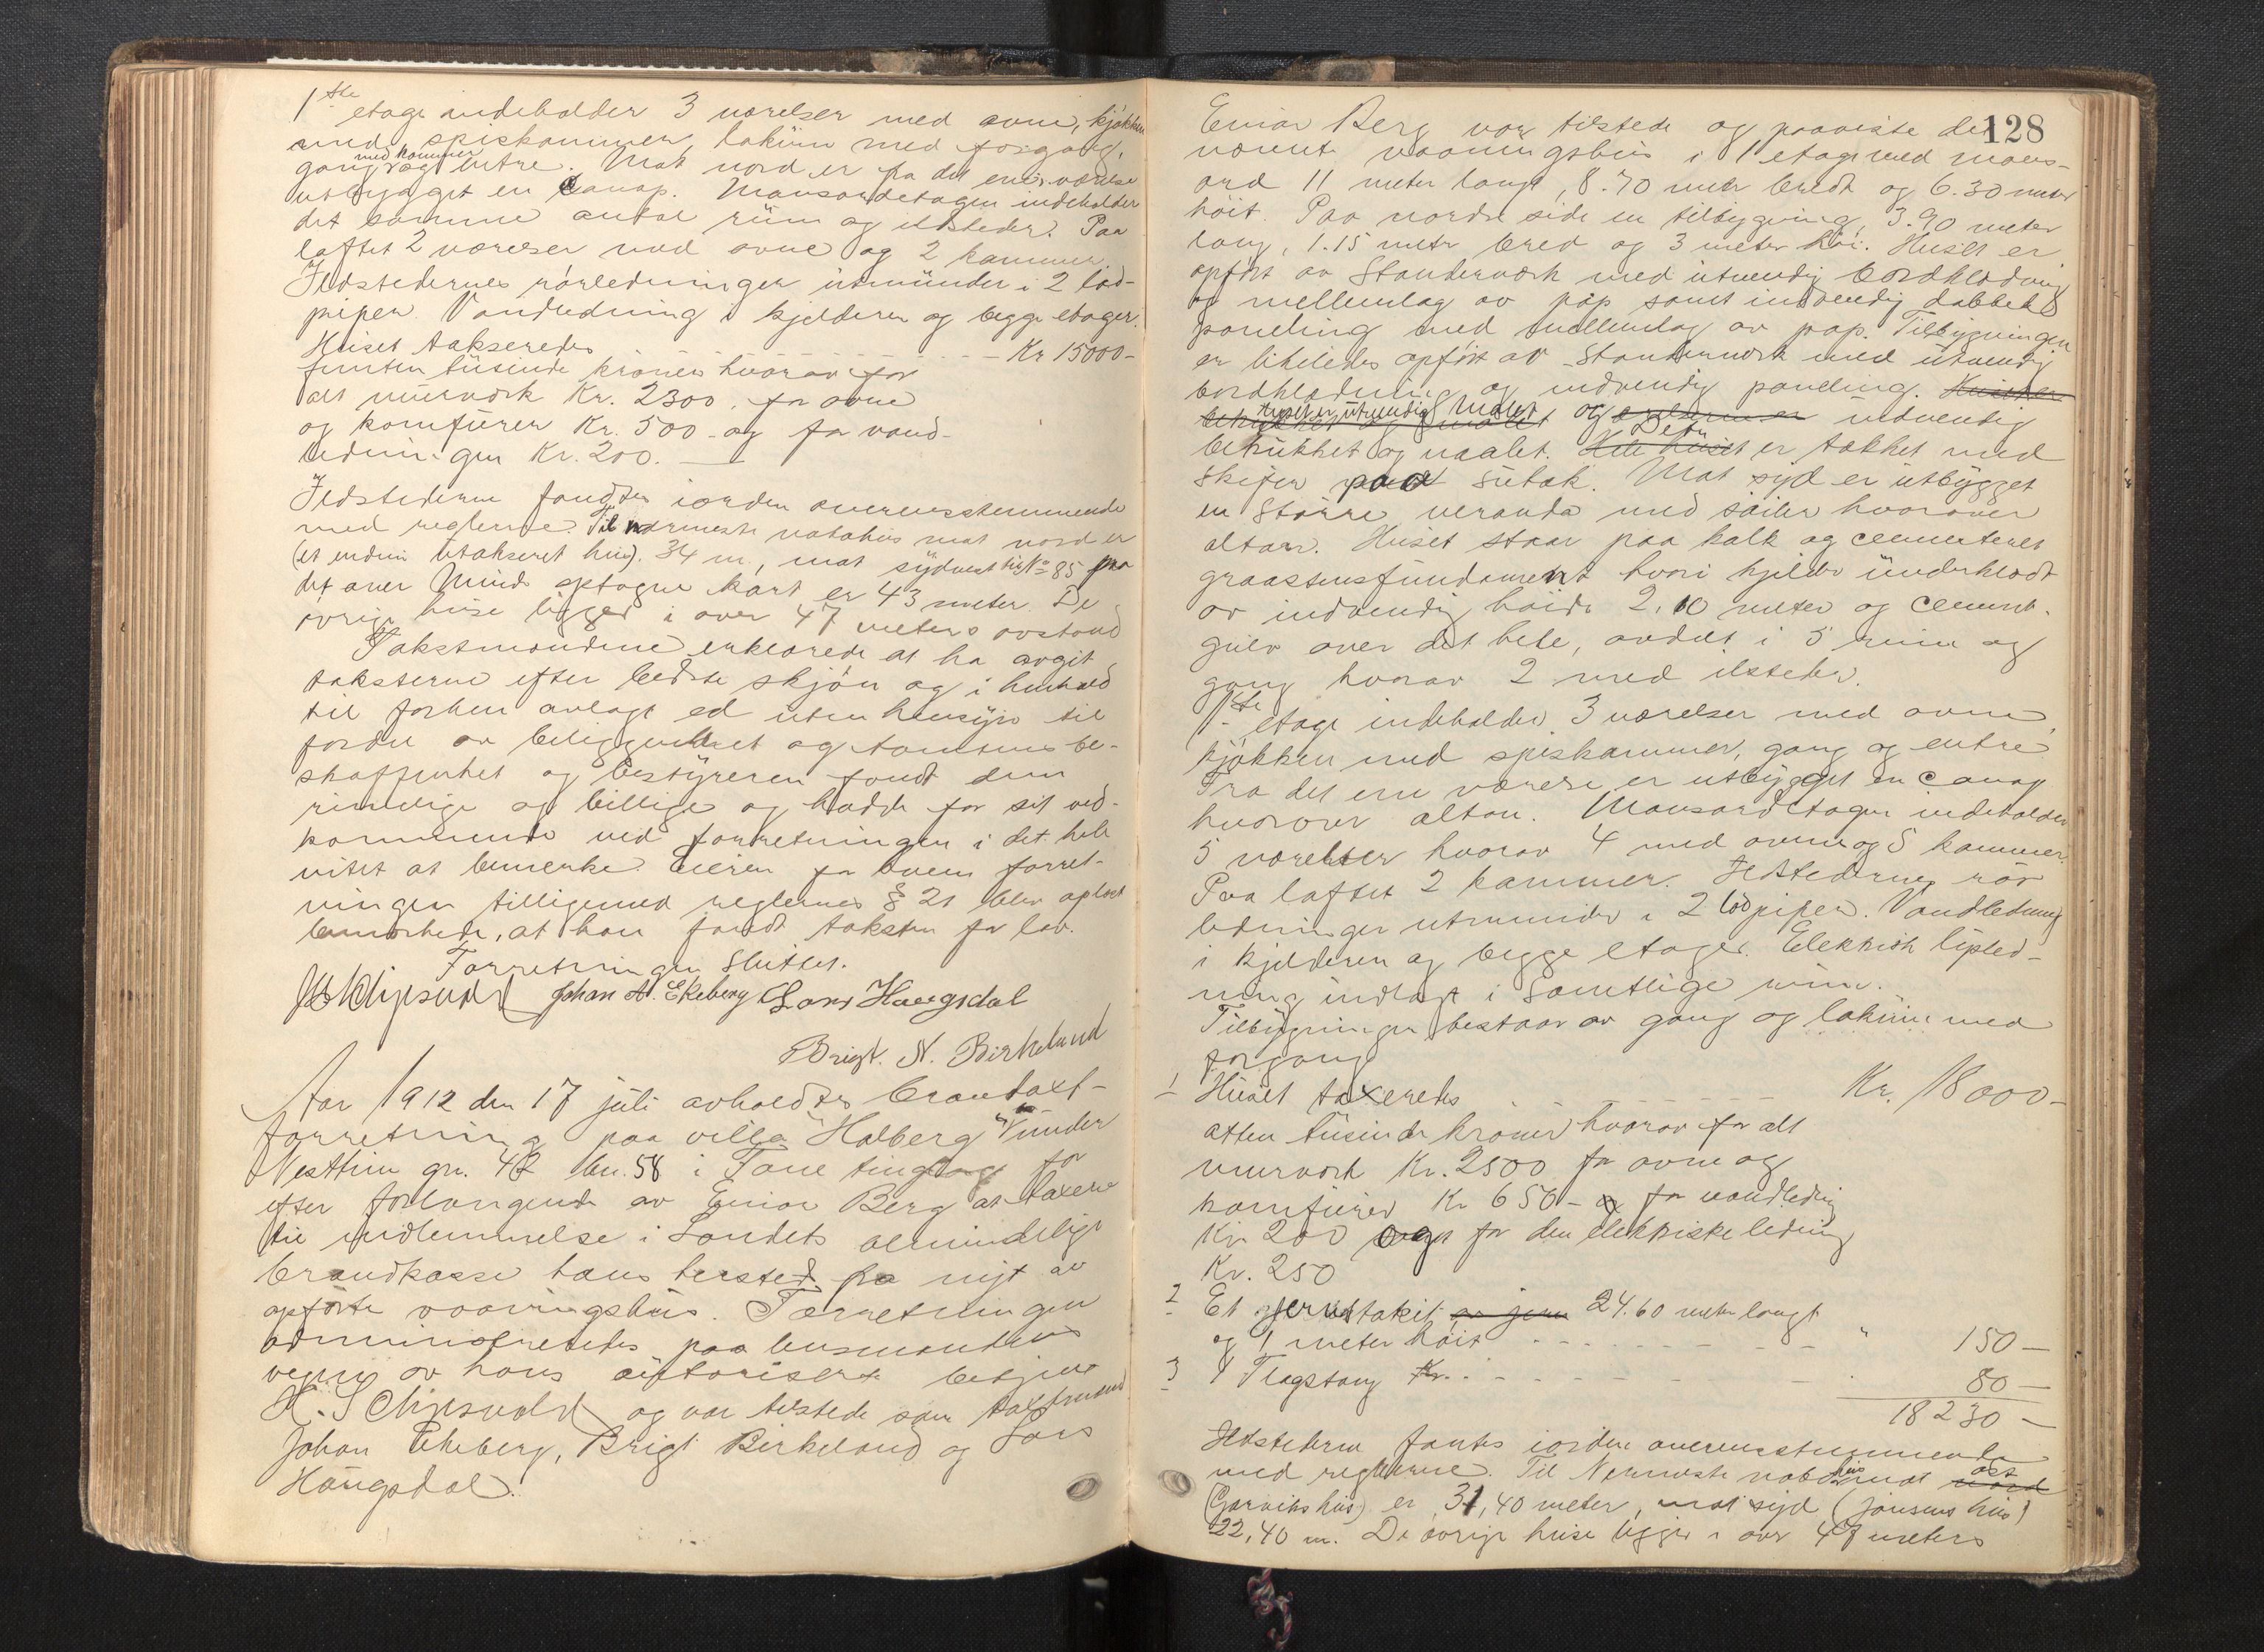 1ste etage indeholder 3 værelser med ovne, kjøkken
med spiskammer, lokum med forgang,
gang med kammer og entre. Mot nord er fra det ene værelse
utbygget en canap. Mansardetagen indeholder
det samme antal rum og ildsteder. Paa
loftet 2 værelser med ovne og 2 kammer.
Ildstedernes rørledninger utmunder i 2 lod-
piper. Vandledning i kjelderen og begge etager.
Huset takseredes - - - - - - Kr 15000-
femten tusinde kroner hvorav for
alt murverk Kr. 2300. for ovne
og komfurer Kr. 500 - og for vand-
ledningen Kr. 200. —
Ildstederne fandtes iorden overensstemmende
med reglerne. Til nærmeste nabohus mot nord er
(et endnu utakseret hus). 34 m, mot sydvest hus No 85 paa
det over Minde optagne kart er 43 meter. De
øvrige huse ligger i over 47 meters avstand
Takstmændene erklærede at ha avgit
taksterne efter bedste skjøn og i henhold
til forhen avlagt ed uten hensyn til
fordel av beliggenhet og tomtens be-
skaffenhet og bestyreren fandt dem
rimelige og billige og hadde for sit ved-
kommende ved forretningen i det hele
intet at bemerke. Eieren for hvem forret-
ningen tilligemed reglernes § 21 blev oplæst
bemerkede, at han fandt taksten for lav.
Forretningen sluttet.
Johan A. Ekeberg Lars Haugsdal
Brigt. N. Birkeland
Aar 1912 den 17 juli avholdtes brandtaxt-
forretning paa villa "Halberg" under
Nesttun gn. 42 bn. 58 i Fane tinglag for
efter forlangende av Einar Berg at taxere
til indlemmelse i Landets almindelige
brandkasse hans hersted fra nyt av
opførte vaaningshus. Forretningen
administreredes paa lensmandens
vegne av hans autoriserte betjent
og var tilstede som taxtmænd
Johan Ekeberg, Brigt Birkeland og Lars
Haugsdal.
128
Einar Berg var tilstede og paaviste det
nævnte vaaningshus i 1 etage med mans-
ard 11 meter langt, 8.70 meter bredt og 6.30 meter
høit. Paa nordre side en tilbygning, 3.90 meter
lang, 1.15 meter bred og 3 meter høi. Huset er
opført av Standerverk med utvendig bordklædning
og mellemlag av pap samt indvendig dobbelt
paneling med mellemlag av pap. Tilbygningen
er likeledes opført av standerverk med utvendig
bordklædning og indvendig paneling.
Huset er utvendig malet og indvendig
betrukket og malet. Det er tækket med
Skifer paa sutak. Mot syd er utbygget
en større veranda med søiler hvorover
altan. Huset staar paa kalk og cementeret
graastensfundament hvori kjelder underhele
av indvendig høide 2,10 meter og cement-
gulv over det hele, avdelt i 5 rum og
gang hvorav 2 med ilsteder.
1ste etage indeholder 3 værelser med ovne,
kjøkken med spiskammer, gang og entre
Fra det ene værelse er utbygget en canap
hvorover altan. Mansardetagen indeholder
5 værelser hvorav 4 med ovne og 5 kammer.
Paa loftet 2 kammer. Ildstedernes rør
ledninger utmunder i 2 lodpiper. Vandledning
i kjelderen og begge etager. Elektrisk lysled-
ning indlagt i samtlige rum.
Tilbygningen bestaar av gang og lokum med
forgang
1 Huset taxeredes - - - - - - Kr. 18000-
atten tusinde kroner hvorav for alt
murverk Kr. 2500 for ovne og
komfurer Kr 650 - for vandledning
Kr 200 og for den elektriske ledning
Kr. 250
2 Et jernstakit av jern 24.60 meter langt
og 1 meter høit - - - - - - " 150 —
3 1 Flagstang Kr. - - - - - - 80 —
18230 —
Ildstederne fantes iorden overensstemmende
med reglerne. Til Nermeste nabohus mot nord øst
(Garviks hus) er 31,40 meter, mot syd (Jansens hus)
22,40 m. De øvrige huse ligger i over 47 meters